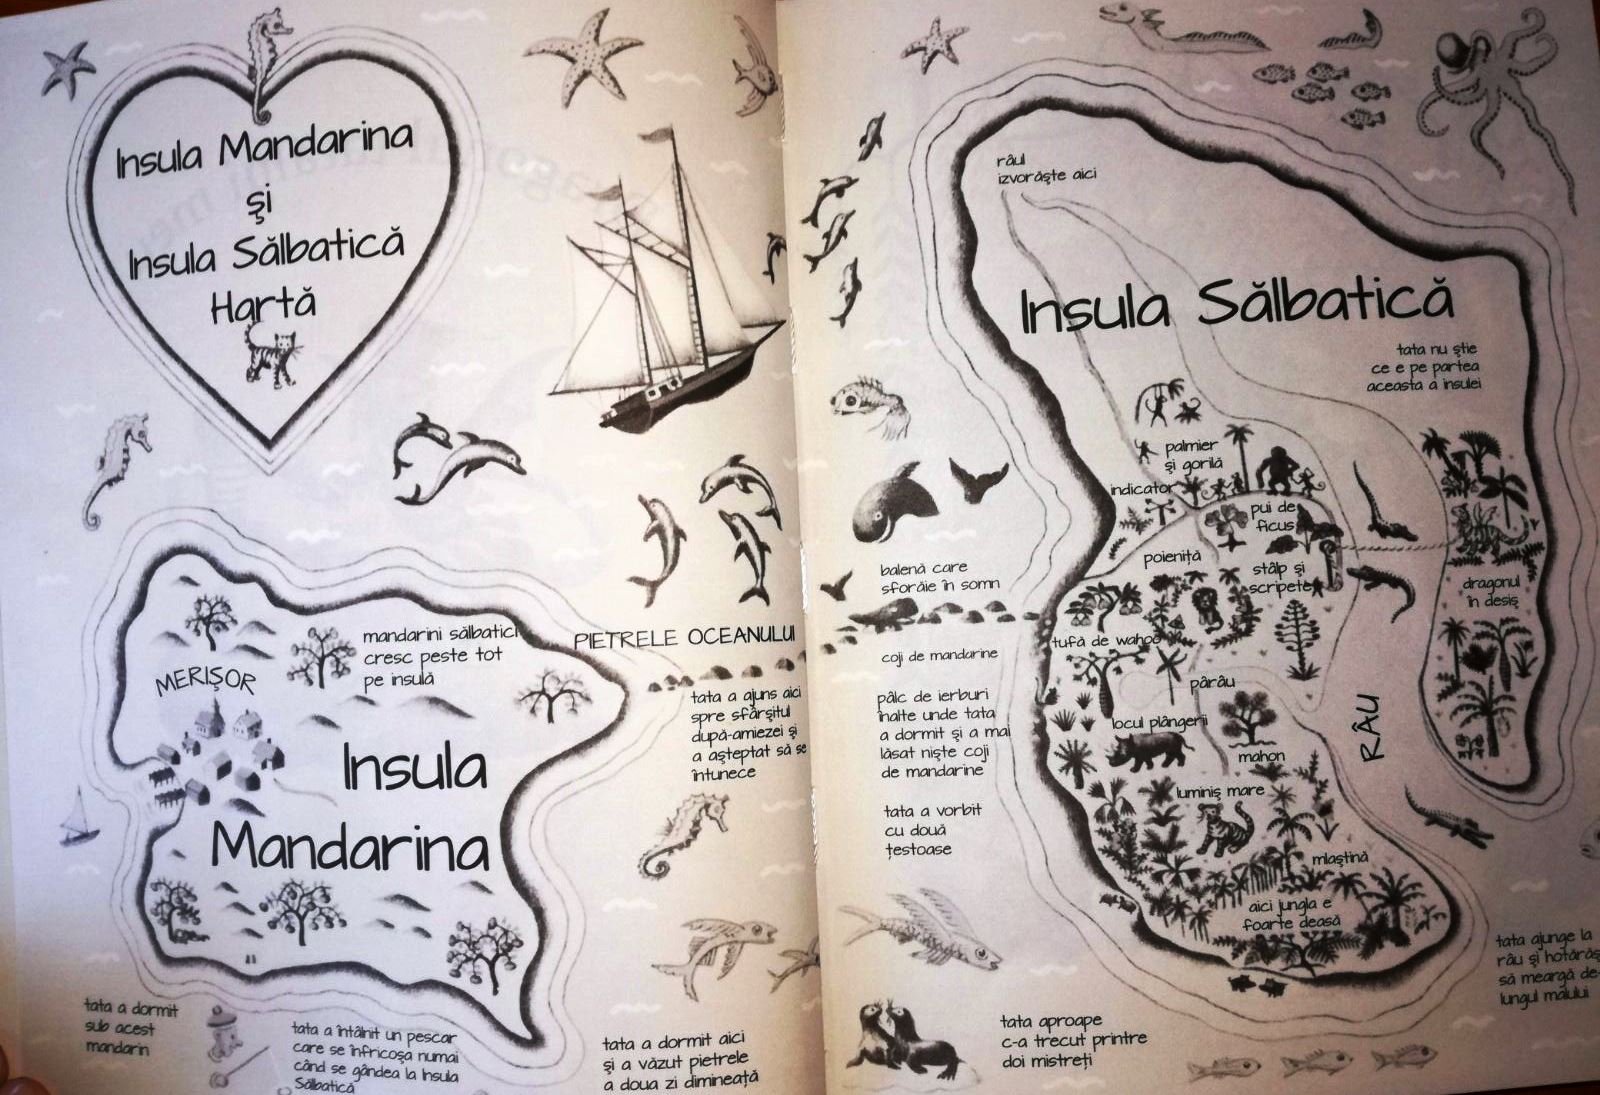 Insula Mandarina
și
Insula Sălbatică
Hartă
mandarini sălbatici
cresc peste tot
pe insulă
MERIȘOR
Insula
Mandarina
PIETRELE OCEANULUI
tata a ajuns aici
spre sfârșitul
după-amiezei și
a așteptat să se
întunece
tata a dormit
sub acest
mandarin
tata a întâlnit un pescar
care se înfricoșa numai
când se gândea la Insula
Sălbatică
tata a dormit aici
și a văzut pietrele
a doua zi dimineață
râul
izvorăște aici
Insula Sălbatică
tata nu știe
ce e pe partea
aceasta a insulei
palmier
și gorilă
indicator
pui de
ficus
poieniță
stâlp și
scripete
dragonul
în desiș
balenă care
sforăie în somn
tufă de wahoo
coji de mandarine
pârâu
pâlc de ierburi
înalte unde tata
a dormit și a mai
lăsat niște coji
de mandarine
locul plângerii
RÂU
mahon
luminiș mare
tata a vorbit
cu două
țestoase
mlaștină
aici jungla e
foarte deasă
tata ajunge la
râu și hotărăș
să meargă de-
lungul malului
tata aproape
c-a trecut printre
doi mistreți